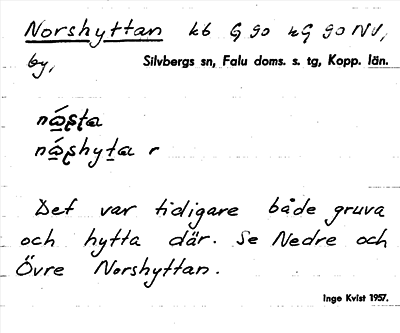 Norshyttan kb G 90 nG 90 NV,
by, Silvbergs sn, Falu doms. s. tg, Kopp. län.
nɑ́ʂta
nɑ́ʂhyta r
Det var tidigare både gruva
och hytta där. Se Nedre och
Övre Norshyttan.
Inge Kvist 1957.